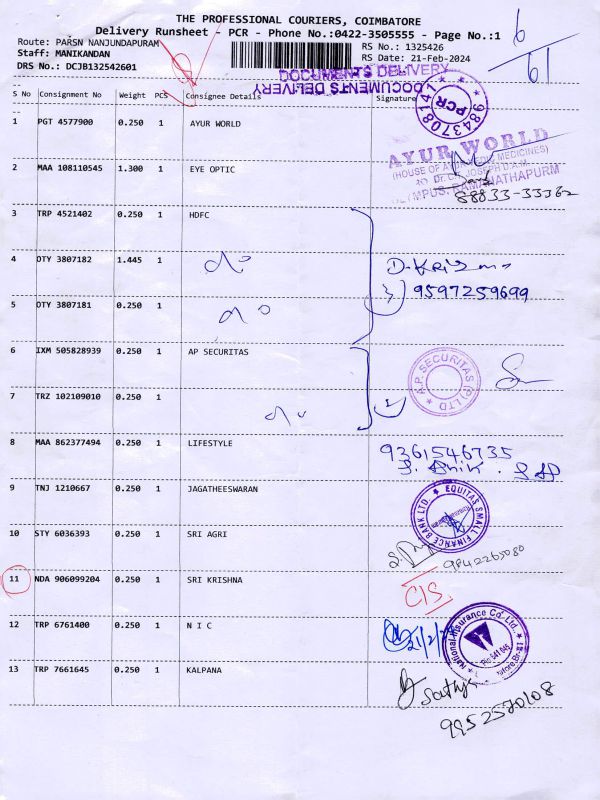 THE PROFESSIONAL COURIERS, COIMBATORE
Delivery Runsheet - PCR - Phone No.:0422-3505555 - Page No.:1
6/61
Route: PARSN NANJUNDAPURAM
RS No.: 1325426
Staff: MANIKANDAN
RS Date: 21-Feb-2024
DRS No.: DCJB132542601
DOCUMENTS DELIVERY
DOCUMENTS DELIVERY
S No Consignment No Weight PCS Consignee Details Signature
PCR
1 PGT 4577900 0.250 1 AYUR WORLD
AYUR WORLD
2 MAA 108110545 1.300 1 EYE OPTIC
88833-33362
3 TRP 4521402 0.250 1 HDFC
4 OTY 3807182 1.445 1
D.Krisna
3) 9597259699
5 OTY 3807181 0.250 1
6 IXM 505828939 0.250 1 AP SECURITAS
A.P. SECURITAS (P) LTD
7 TRZ 102109010 0.250 1
8 MAA 862377494 0.250 1 LIFESTYLE
9361546735
9 TNJ 1210667 0.250 1 JAGATHEESWARAN
EQUITAS SMALL FINANCE BANK LTD.
10 STY 6036393 0.250 1 SRI AGRI
9842265080
11 NDA 906099204 0.250 1 SRI KRISHNA
C/S
12 TRP 6761400 0.250 1 N I C
21/2/24
National Insurance Co. Ltd.
13 TRP 7661645 0.250 1 KALPANA
Sathya
9952570108